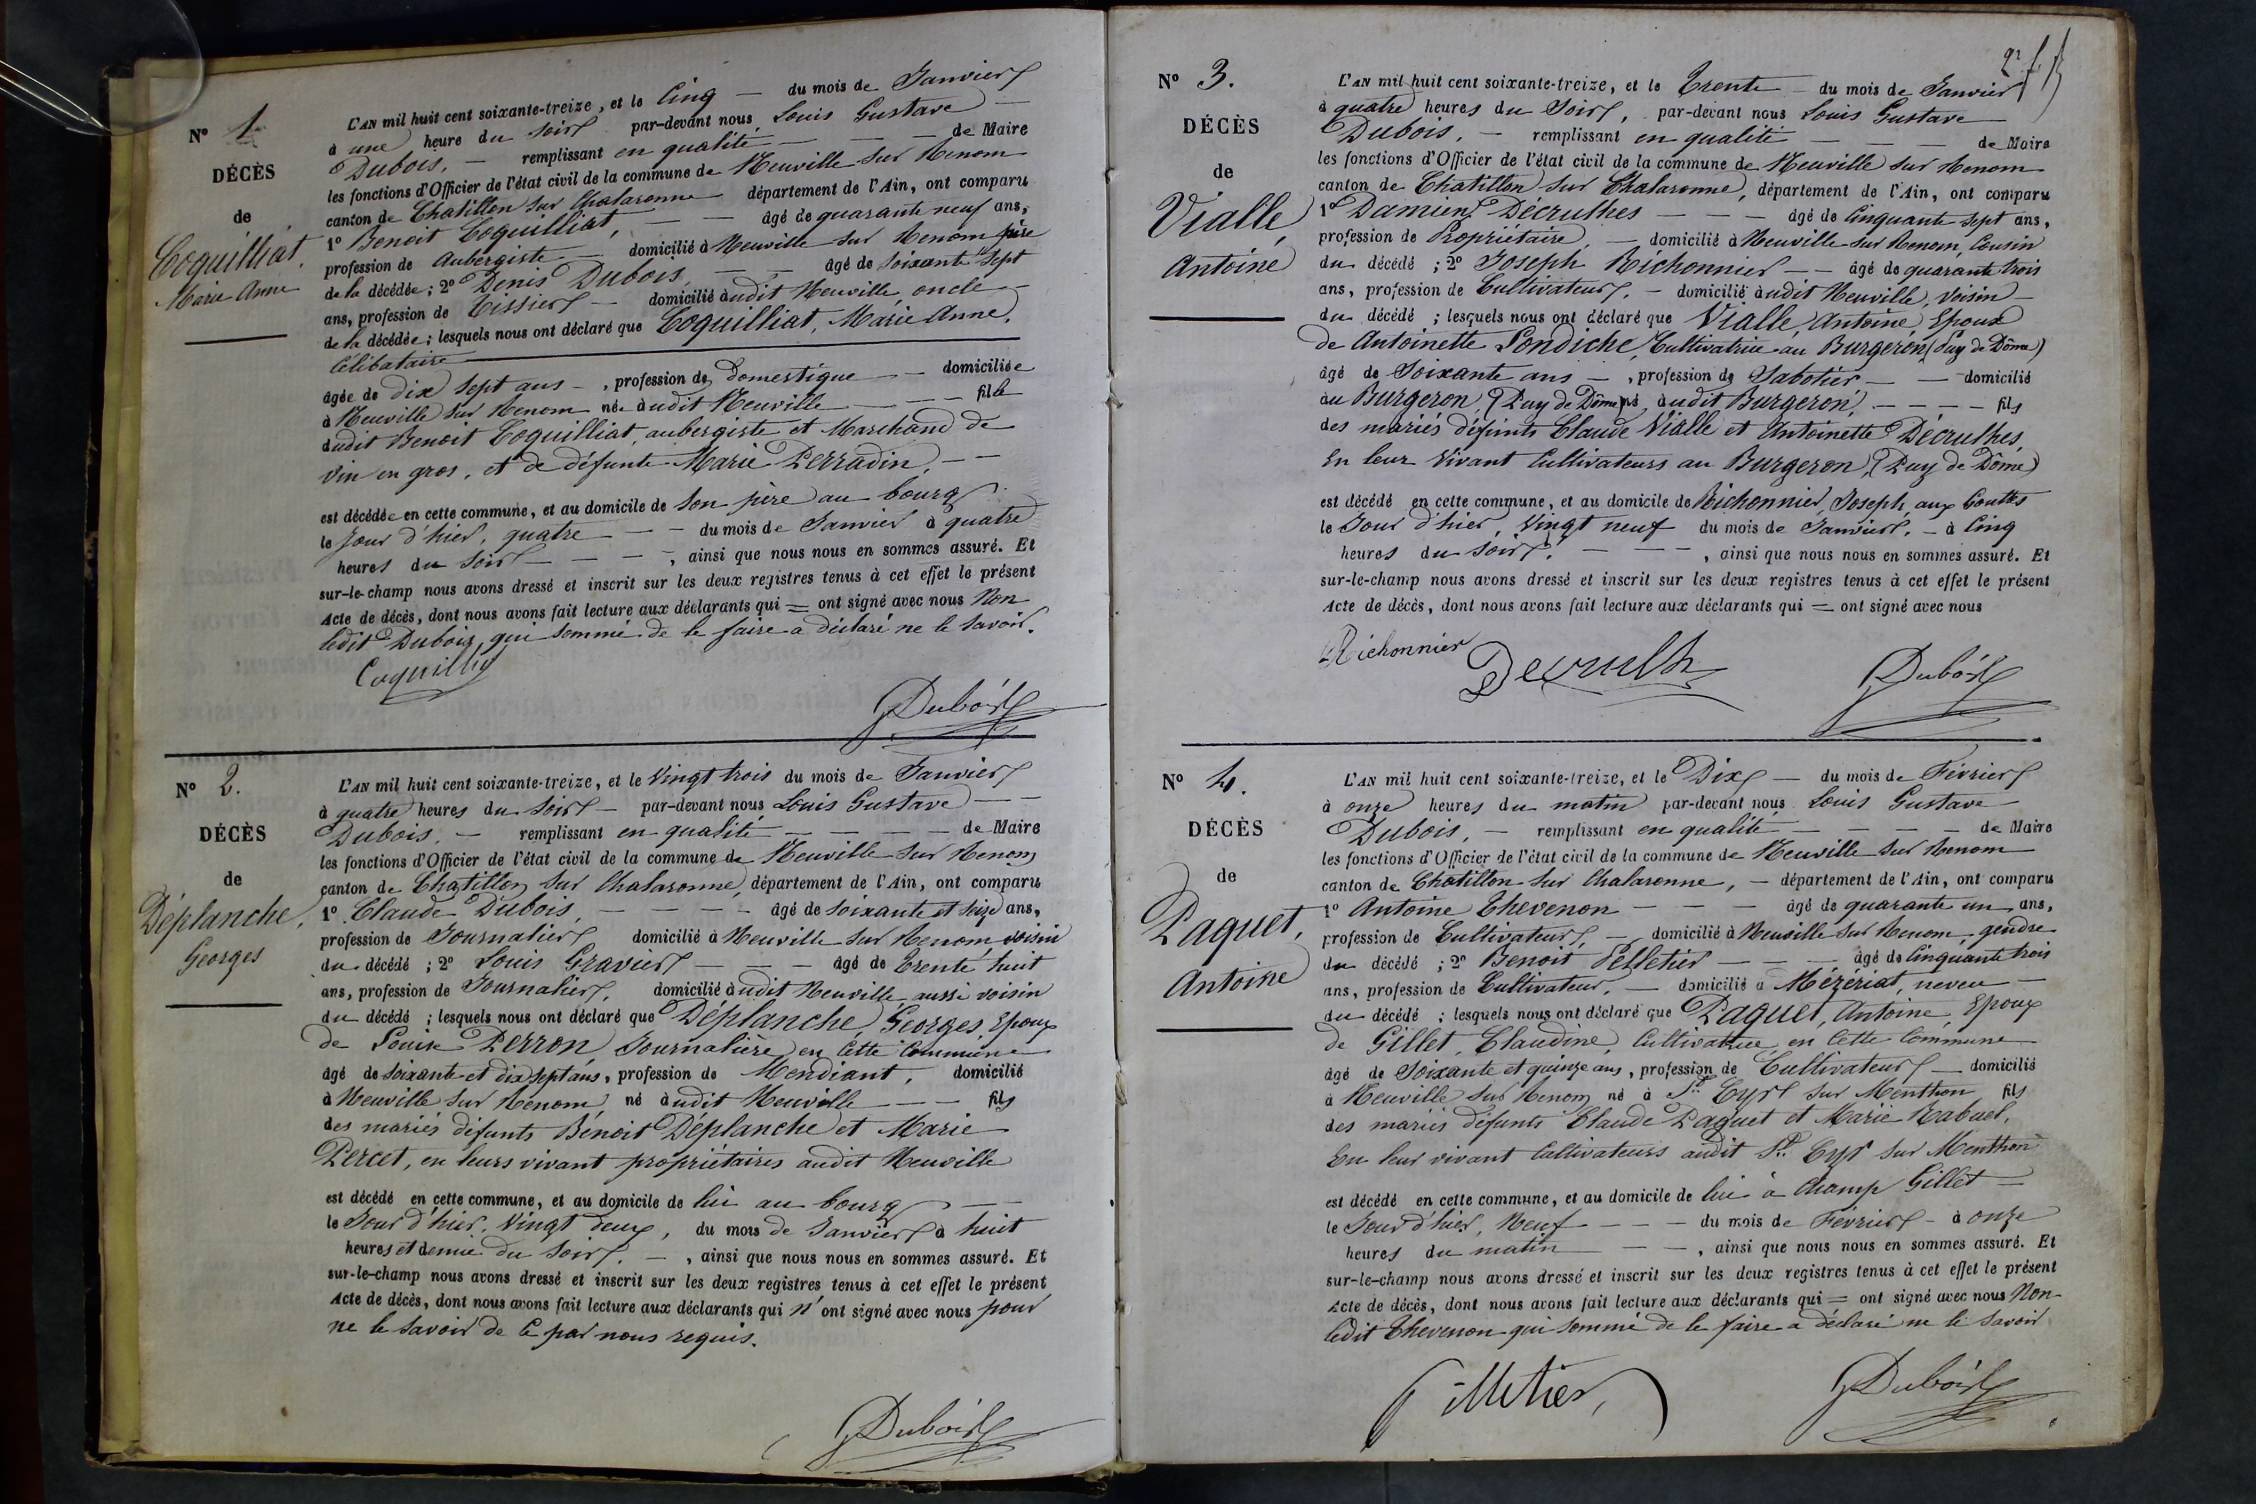 Nº 1.
DÉCÈS
de
Coquilliat,
Marie Anne
L'AN mil huit cent soixante-treize, et le Cinq — du mois de Janvier
à une heure du soir par-devant nous Louis Gustave —
Dubois, — remplissant en qualité — — — de Maire
les fonctions d'Officier de l'état civil de la commune de Neuville sur Renom
canton de Chatillon sur Chalaronne département de l'Ain, ont comparu
1º Benoit Coquilliat, — — âgé de quarante neuf ans,
profession de Aubergiste — domicilié à Neuville sur Renom père
de la décédée ; 2º Denis Dubois, — — âgé de soixante sept
ans, profession de Tissier — domicilié audit Neuville, oncle —
de la décédée ; lesquels nous ont déclaré que Coquilliat, Marie Anne,
Célibataire
âgée de dix sept ans — , profession de domestique — domiciliée
à Neuville sur Renom née audit Neuville — — fille
dudit Benoit Coquilliat, aubergiste et Marchand de
vin en gros, et de défunte Marie Perradin, — —
est décédée en cette commune, et au domicile de son père au bourg
le jour d'hier, quatre — — du mois de Janvier à quatre
heures du soir — — — , ainsi que nous nous en sommes assuré. Et
sur-le-champ nous avons dressé et inscrit sur les deux registres tenus à cet effet le présent
Acte de décès, dont nous avons fait lecture aux déclarants qui = ont signé avec nous Non
ledit Dubois, qui sommé de le faire a déclaré ne le savoir.
Coquilliat
Dubois
Nº 2.
DÉCÈS
de
Déplanche,
Georges
L'AN mil huit cent soixante-treize, et le Vingt trois du mois de Janvier
à quatre heures du soir — par-devant nous Louis Gustave — —
Dubois, — remplissant en qualité — — — — de Maire
les fonctions d'Officier de l'état civil de la commune de Neuville sur Renom
canton de Chatillon sur Chalaronne, département de l'Ain, ont comparu
1º Claude Dubois, — — — — âgé de soixante et seize ans,
profession de Journalier domicilié à Neuville sur Renom, voisin
du décédé ; 2º Louis Gravier — — — âgé de Trente huit
ans, profession de Journalier, domicilié audit Neuville aussi voisin
du décédé ; lesquels nous ont déclaré que Déplanche, Georges, Epoux
de Louise Perron, Journalière en cette Commune
âgé de soixante et dix sept ans, profession de Mendiant, domicilié
à Neuville sur Renom, né audit Neuville — — fils
des mariés défunts Benoit Déplanche et Marie
Percet, en leurs vivant propriétaires audit Neuville
est décédé en cette commune, et au domicile de lui au bourg — —
le Jour d'hier, Vingt deux, du mois de Janvier à huit
heures et demie du soir, — , ainsi que nous nous en sommes assuré. Et
sur-le-champ nous avons dressé et inscrit sur les deux registres tenus à cet effet le présent
Acte de décès, dont nous avons fait lecture aux déclarants qui n'ont signé avec nous pour
ne le savoir de ce par nous requis.
Dubois
Nº 3.
DÉCÈS
de
Vialle,
Antoine
L'AN mil huit cent soixante-treize, et le Trente — du mois de Janvier
à quatre heures du Soir, par-devant nous Louis Gustave —
Dubois, — remplissant en qualité — — — de Maire
les fonctions d'Officier de l'état civil de la commune de Neuville sur Renom
canton de Chatillon sur Chalaronne, département de l'Ain, ont comparu
1º Damien Décrulhes — — — âgé de Cinquante sept ans,
profession de Propriétaire, — domicilié à Neuville sur Renom, Cousin
du décédé ; 2º Joseph Richonnier — — âgé de quarante trois
ans, profession de Cultivateur, — domicilié audit Neuville, Voisin —
du décédé ; lesquels nous ont déclaré que Vialle, Antoine, Epoux
de Antoinette Sondiche, Cultivatrice au Burgeron (Puy de Dôme)
âgé de Soixante ans — , profession de Sabotier — — domicilié
au Burgeron, (Puy de Dôme) né audit Burgeron, — — — — fils
des mariés défunts Claude Vialle et Antoinette Décrulhes,
En leur Vivant Cultivateurs au Burgeron, (Puy de Dôme)
est décédé en cette commune, et au domicile de Richonnier, Joseph, aux Gouttes
le Jour d'hier, Vingt neuf du mois de Janvier, — à Cinq
heures du Soir, — — — , ainsi que nous nous en sommes assuré. Et
sur-le-champ nous avons dressé et inscrit sur les deux registres tenus à cet effet le présent
Acte de décès, dont nous avons fait lecture aux déclarants qui = ont signé avec nous
Richonnier
Decrulh
Dubois
Nº 4.
DÉCÈS
de
Paquet,
Antoine
L'AN mil huit cent soixante-treize, et le Dix — du mois de Février
à onze heures du matin par-devant nous Louis Gustave
Dubois, — remplissant en qualité — — — — de Maire
les fonctions d'Officier de l'état civil de la commune de Neuville sur Renom
canton de Chatillon sur Chalaronne, — département de l'Ain, ont comparu
1º Antoine Thevenon — — — âgé de quarante un ans,
profession de Cultivateur, — domicilié à Neuville sur Renom, gendre
du décédé ; 2º Benoit Pelletier — — — âgé de Cinquante trois
ans, profession de Cultivateur, — domicilié à Mézériat, neveu —
du décédé ; lesquels nous ont déclaré que Paquet, Antoine, Epoux
de Gillet, Claudine, Cultivatrice en Cette Commune
âgé de Soixante et quinze ans, profession de Cultivateur — domicilié
à Neuville sur Renom né à St. Cyr sur Menthon fils
des mariés défunts Claude Paquet et Marie Rabuel,
En leur vivant Cultivateurs audit St. Cyr sur Menthon
est décédé en cette commune, et au domicile de lui à Champ Gillet —
le Jour d'hier, Neuf — — — du mois de Février — à onze
heures du matin — — , ainsi que nous nous en sommes assuré. Et
sur-le-champ nous avons dressé et inscrit sur les deux registres tenus à cet effet le présent
Acte de décès, dont nous avons fait lecture aux déclarants qui = ont signé avec nous Non
ledit Thevenon qui sommé de le faire a déclaré ne le savoir
Pelletier
Dubois